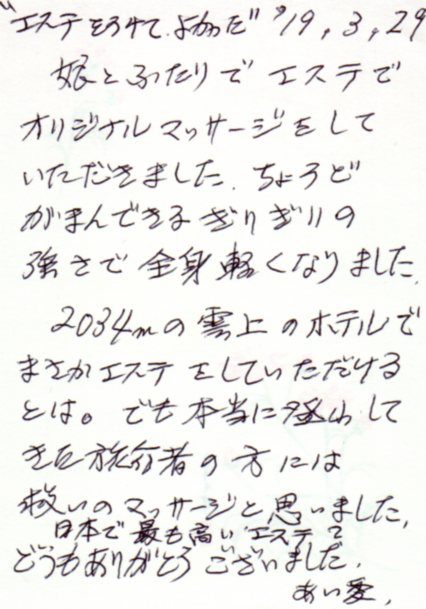 "エステをうけて、よかった" '19,3,29
娘とふたりでエステで
オリジナルマッサージをして
いただきました。ちょうど
がまんできるぎりぎりの
強さで全身軽くなりました。
2034mの雲上のホテルで
まさかエステをしていただける
とは。でも本当に登山して
きた旅行者の方には
救いのマッサージと思いました。
日本で最も高いエステで
どうもありがとうございました。
あい愛.